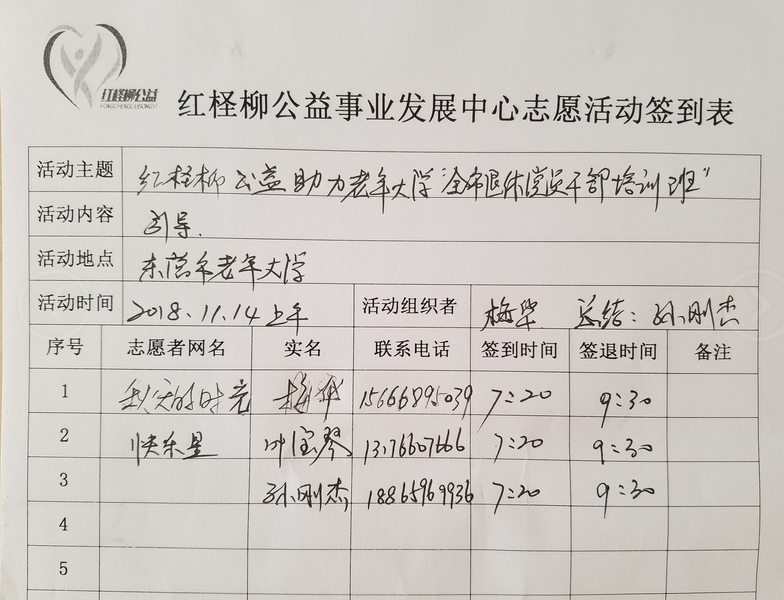 红柽柳公益
红柽柳公益事业发展中心志愿活动签到表
活动主题 红柽柳公益助力老年大学“全市退休党员干部培训班”
活动内容 引导.
活动地点 东营市老年大学
活动时间 2018.11.14上午 活动组织者 梅华 总结:孙刚杰
序号 志愿者网名 实名 联系电话 签到时间 签退时间 备注
1 秋天的时光 梅华 15666895039 7:20 9:30
2 快乐星 叶宝琴 13176607666 7:20 9:30
3 孙刚杰 18865969936 7:20 9:30
4
5